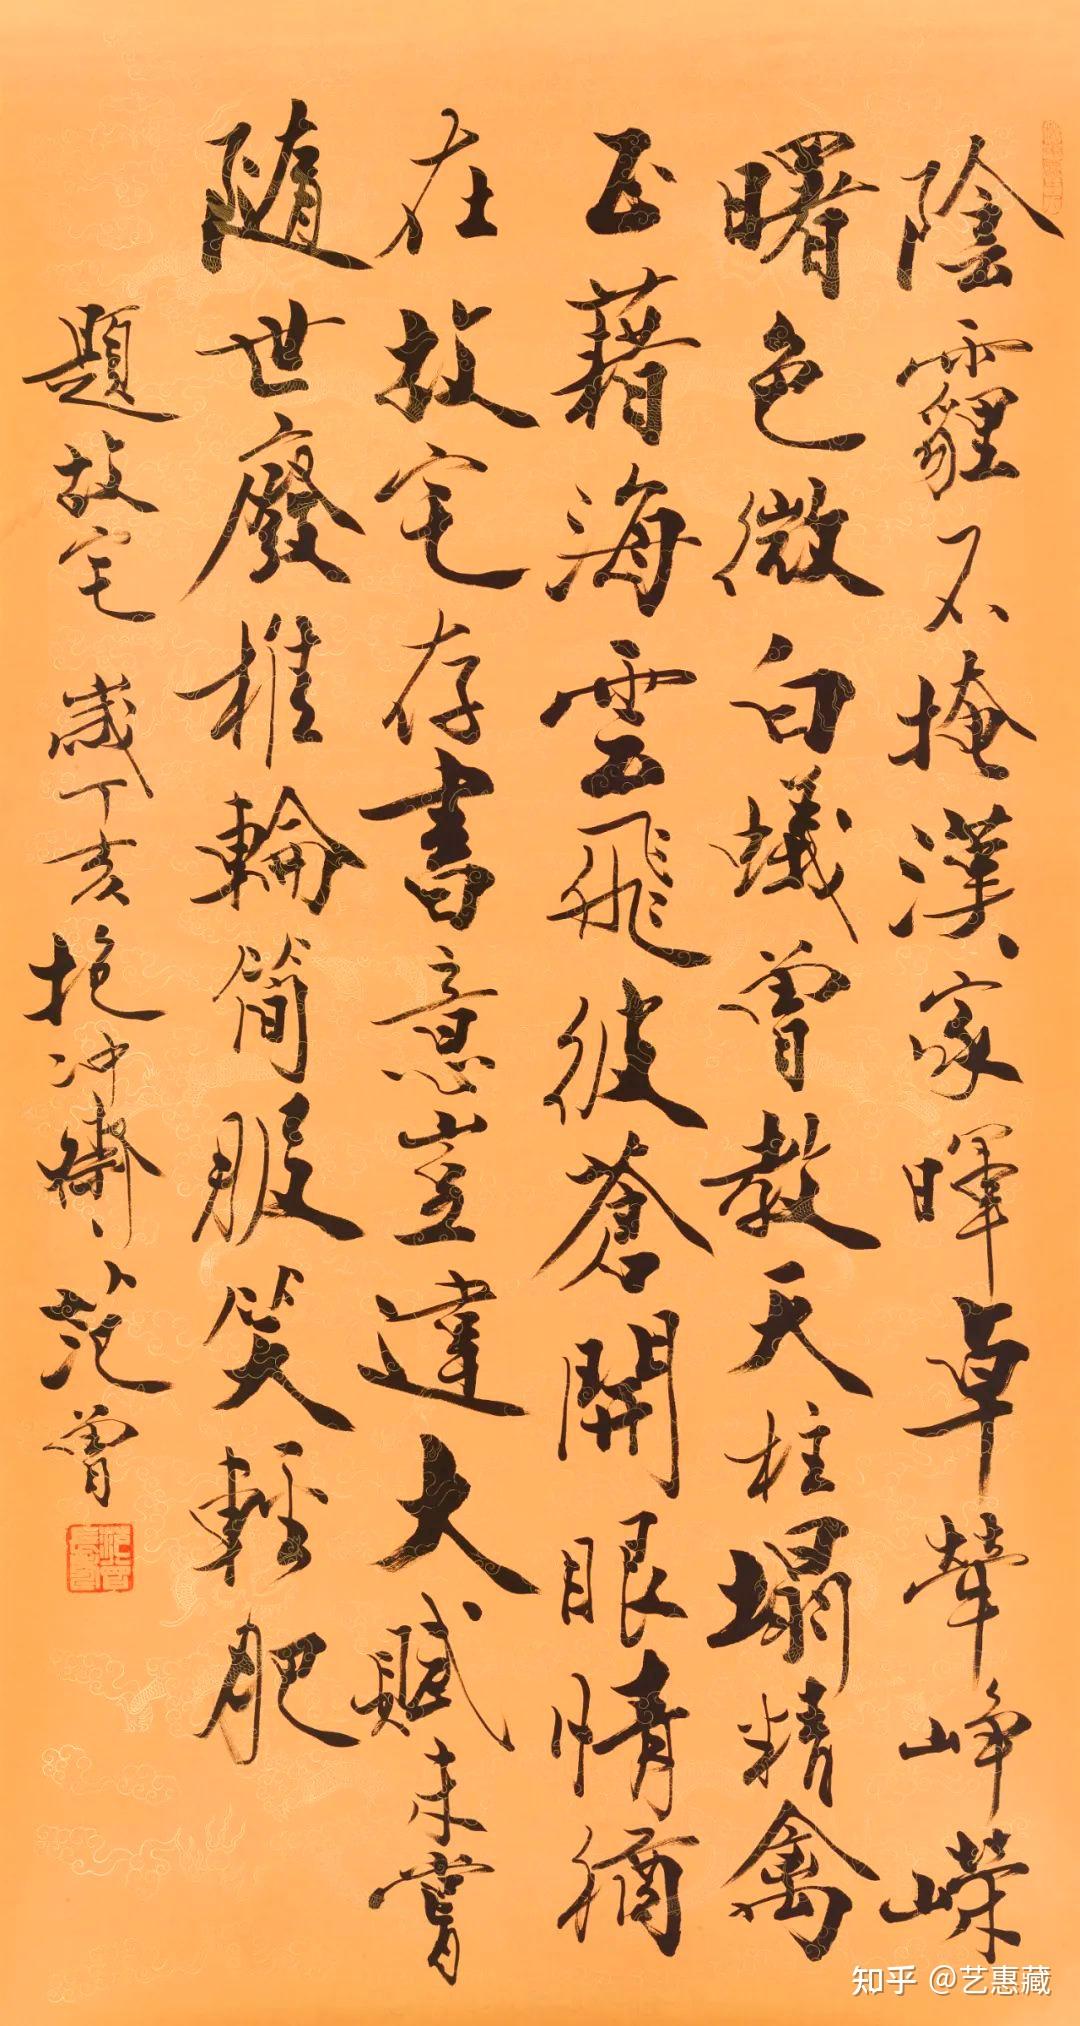 陰霾不掩漢家暉卓犖崢嶸
曙色微白蟻曾教天柱塌精禽
正藉海雲飛彼蒼開眼情猶
在故宅存書意豈違大賦未嘗
隨世廢椎輪簡服笑輕肥
題故宅 歲丁亥抱冲齋范曾
知乎 @艺惠藏